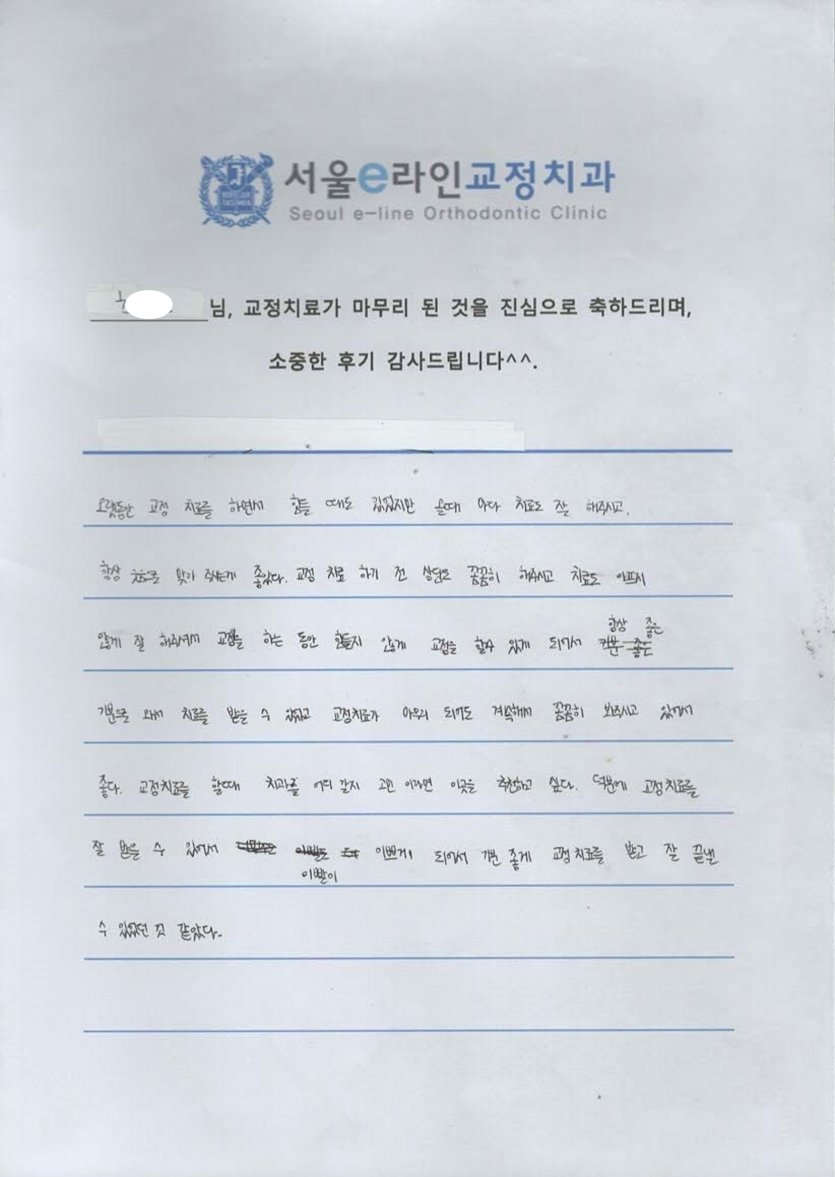 서울e라인교정치과
Seoul e-line Orthodontic Clinic
님, 교정치료가 마무리 된 것을 진심으로 축하드리며,
소중한 후기 감사드립니다^^.
오랫동안 교정 치료를 하면서 힘들 때도 있었지만 올때 마다 치료도 잘 해주시고.
항상 맞아 주시는게 좋았다. 교정 치료 하기 전 상담도 꼼꼼히 해주시고 치료도 아프시
않게 잘 해주셔서 교정을 하는 동안 힘들지 않게 교정을 할수 있게 되어서 항상 좋은
기분으로 와서 치료를 받을 수 있었고 교정치료가 마무리 되어도 계속해서 꼼꼼히 봐주시고 있어서
좋다. 교정치료를 할때 치과를 어디 갈지 고민 이라면 이곳을 추천하고 싶다. 덕분에 교정치료를
잘 받을 수 있어서 이빨이 이쁘게 되어서 기분 좋게 교정치료를 받고 잘 끝낼
수 있었던 것 같았다.